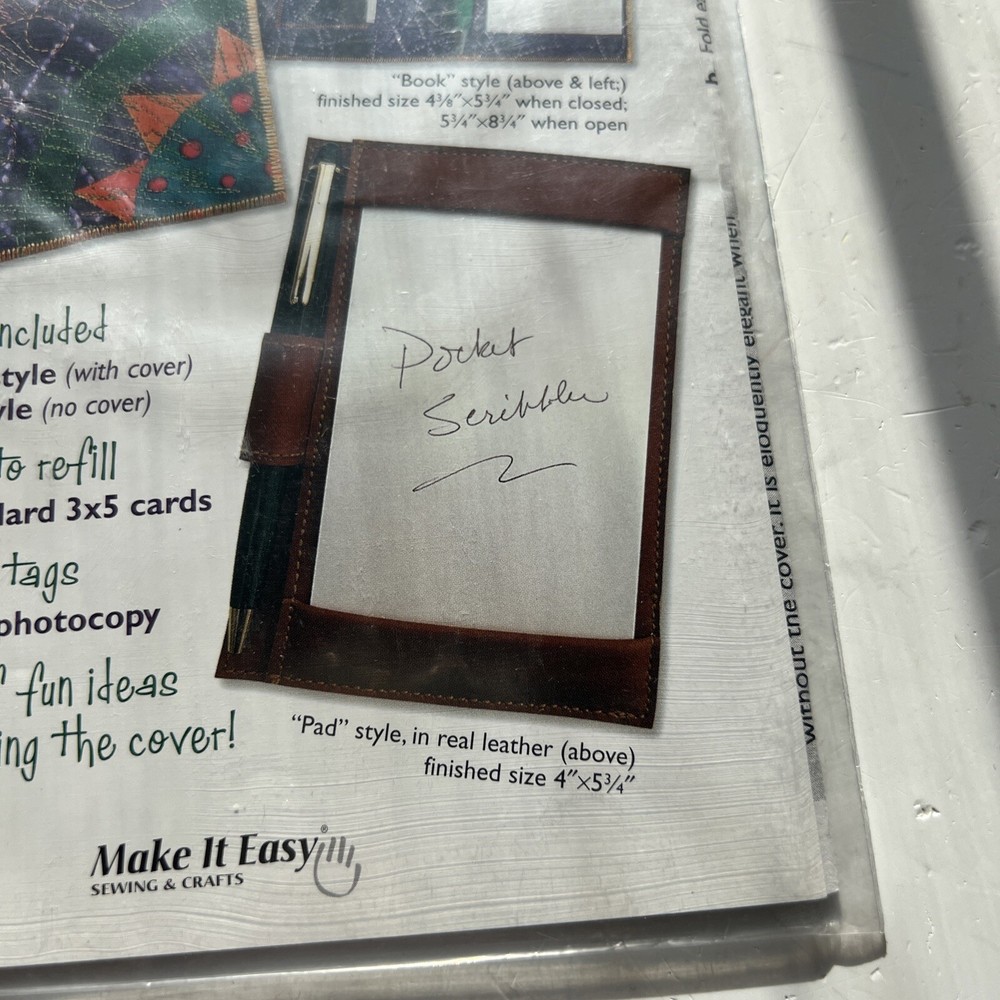 "Book" style (above & left;)
finished size 4⅜"×5¾" when closed;
5¾"×8¾" when open
Pocket
Scribbler
ncluded
tyle (with cover)
le (no cover)
to refill
dard 3x5 cards
tags
photocopy
f fun ideas
ing the cover!
"Pad" style, in real leather (above)
finished size 4"×5¾"
Make It Easy®
SEWING & CRAFTS
h. Fold
without the cover. It is eloquently elegant when